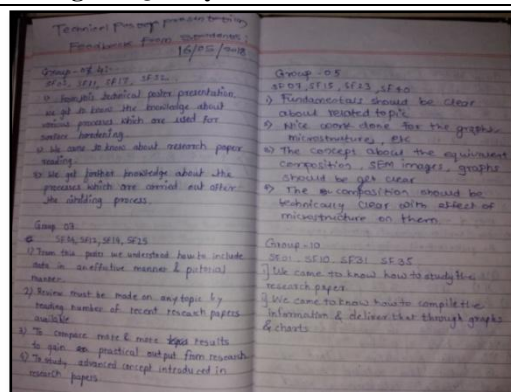 Technical Poster presentation
Feedback form Students:
16/05/2018
Group - 04:
SF17, SF22
1) From this technical poster presentation
we get to know the knowledge about
various processes which are used for
surface hardening.
2) We came to know about research paper
reading.
3) We get further knowledge about the
processes which are carried out after
the welding process.
Group 07
SF12, SF14, SF25
1) From this poster we understand how to include
data in an effective manner & pictorial
manner.
2) Review must be made on any topic by
reading number of recent research papers
available.
3) To compare more & more results
to gain practical output from research
4) To study advanced concept introduced in
research papers
Group - 05
SF07, SF15, SF23, SF40
1) Fundamentals should be clear
about related topic.
2) Nice work done for the graphs,
microstructures, etc
3) The concept about the equivalent
composition, SEM images, graphs
should be get clear
4) The composition should be
technically clear with effect of
microstructure on them.
Group - 10
SF01, SF10, SF31 SF35
1) We came to know how to study the
research paper
2) We came to know how to compile the
information & deliver that through graphs
& charts